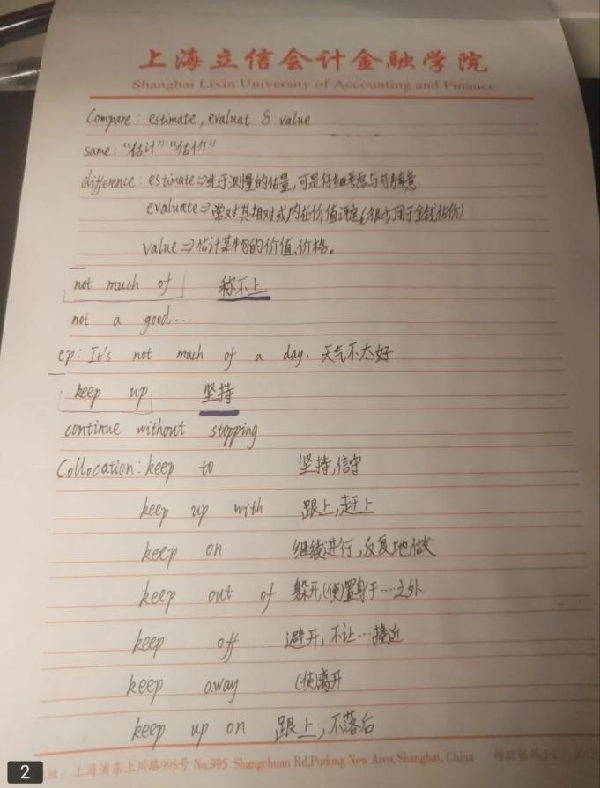 上海立信会计金融学院
Shanghai Lixin University of Accounting and Finance
Compare: estimate, evaluat & value
same: "估计" "估价"
difference: estimate⇒ 测量的估量, 可是仔细考虑与可随意.
evaluate⇒常对其相对或内在价值评定(很少用于金钱估价)
value⇒估计某物的价值、价格。
not much of 称不上
not a good...
ep: It's not much of a day. 天气不太好
keep up 坚持
continue without stopping
Collocation: keep to 坚持,信守
keep up with 跟上,赶上
keep on 继续进行,反复地做
keep out of 躲开(使)置身于…之外
keep off 避开,不让…接近
keep away (使)离开
keep up on 跟上,不落后
址:上海浦东上川路995号 No.995 Shangchuan Rd,Pudong New Area,Shanghai, China 邮政编码
2